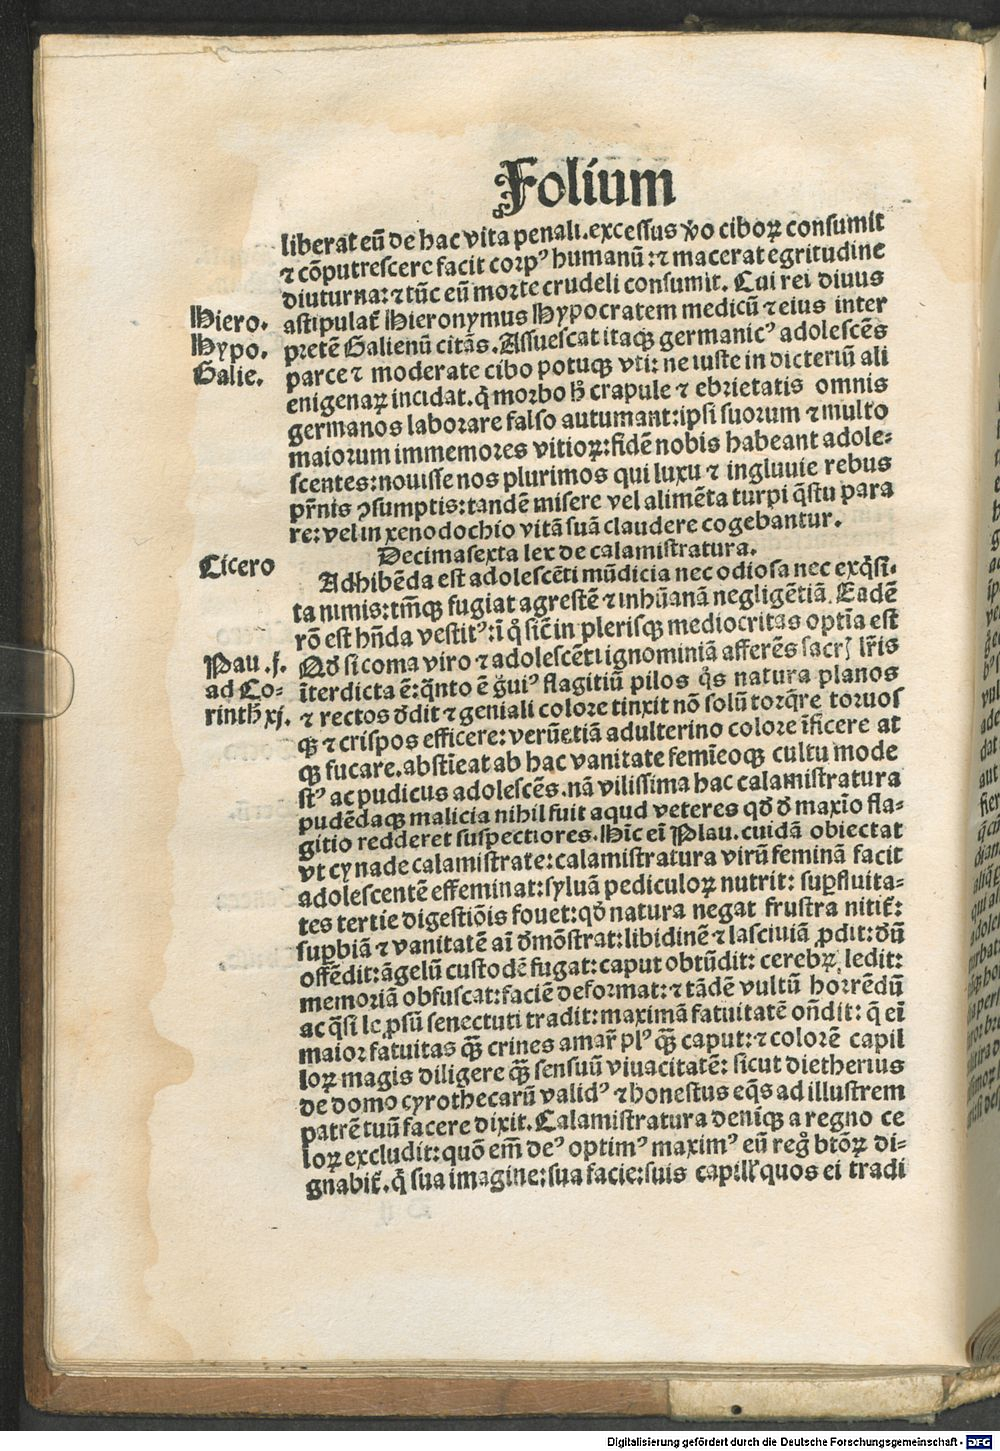 Folium
liberat eū de hac vita penali. excessus ꝟo ciboꝝ consumit
⁊ cōputrescere facit corpꝰ humanū: ⁊ macerat egritudine
diuturna: ⁊ tūc eū morte crudeli consumit. Cui rei diuus
Hiero. astipulat᷑ Hieronymus Hypocratem medicū ⁊ eius inter
Hypo. pretē Galienū citās. Assuescat itaqꝫ germanicꝰ adolescēs
Galie. parce ⁊ moderate cibo potuqꝫ vti: ne iuste in dicteriū ali
enigenaꝝ incidat. q̇ morbo ħ crapule ⁊ ebrietatis omnis
germanos laborare falso autumant: ipsi suorum ⁊ multo
maiorum immemores vitioꝝ: fidē nobis habeant adole-
scentes: nouisse nos plurimos qui luxu ⁊ ingluuie rebus
pr̄nis ꝯsumptis: tandē misere vel alimēta turpi q̄stu para
re: vel in xenodochio vitā suā claudere cogebantur.
Decimasexta lex de calamistratura.
Cicero Adhibēda est adolescēti mūdicia nec odiosa nec exq̇si-
ta nimis: tm̄qꝫ fugiat agrestē ⁊ inhūanā negligētiā. Eadē
rō est hn̄da vestitꝰ: ī q̊ sic̄ in plerisqꝫ mediocritas optīa est
Pau .j. Qđ si coma viro ⁊ adolescēti ignominiā afferēs sacrꝭ lr̄is
ad Co- īterdicta ē: q̄nto ē g̊uiꝰ flagitiū pilos q̊s natura planos
rinth xj. ⁊ rectos đdit ⁊ geniali colore tinxit nō solū torq̄re toruos
qꝫ ⁊ crispos efficere: verūetiā adulterino colore īficere at
qꝫ fucare. abstīeat ab hac vanitate femīeoqꝫ cultu mode
stꝰ ac pudicus adolescēs. nā vilissima hac calamistratura
pudēdaqꝫ malicia nihil fuit aqud veteres qđ đ maxīo fla-
gitio redderet suspectiores. Hīc eī Plau. cuidā obiectat
vt cynade calamistrate: calamistratura virū feminā facit
adolescentē effeminat: syluā pediculoꝝ nutrit: suꝑfluita-
tes tertie digestiōis fouet: qđ natura negat frustra nitit᷑:
suꝑbiā ⁊ vanitatē aī đmōstrat: libidinē ⁊ lasciuiā ꝓdit: đū
offēdit: āgelū custodē fugat: caput obtūdit: cerebꝝ ledit:
memoriā obfuscat: faciē deformat: ⁊ tādē vultū horrēdū
ac q̄si leꝓsū senectuti tradit: maximā fatuitatē on̄dit: q̄ eī
maior fatuitas qꝫ̄ crines amar̄ plꝰ qꝫ̄ caput: ⁊ colorē capil
loꝝ magis diligere qꝫ̄ sensuū viuacitatē: sicut dietherius
de domo cyrothecarū validꝰ ⁊ honestus eq̄s ad illustrem
patrē tuū facere dixit. Calamistratura deniqꝫ a regno ce
loꝝ excludit: quō em̄ deꝰ optimꝰ maximꝰ eū reg̊ btōꝝ di-
gnabit᷑. q̇ sua imagine: sua facie: suis capillꝭ quos ei tradi
Digitalisierung gefördert durch die Deutsche Forschungsgemeinschaft - DFG